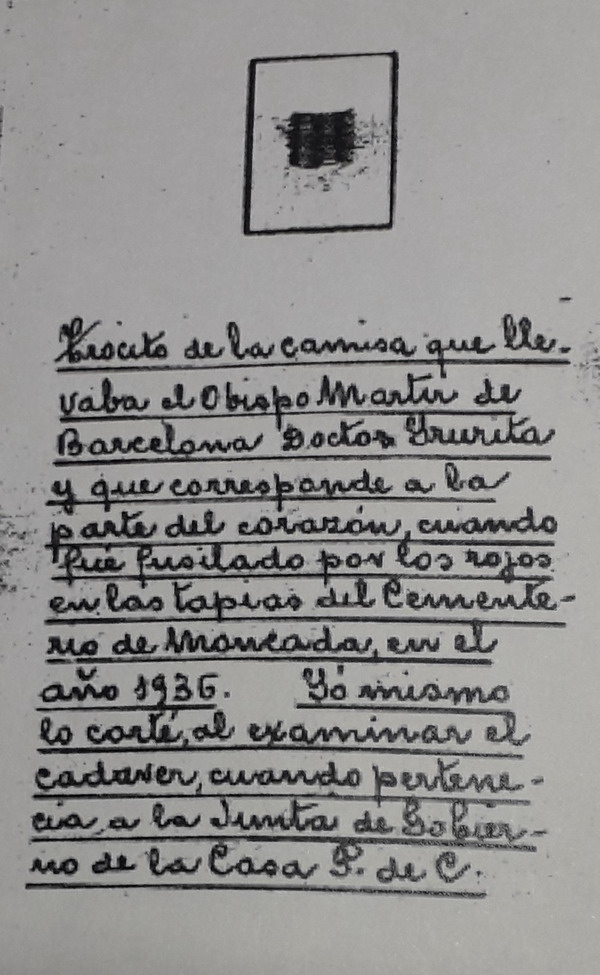 Trocito de la camisa que lle-
vaba el Obispo Martir de
Barcelona Doctor Irurita
y que corresponde a la
parte del corazón, cuando
fué fusilado por los rojos
en las tapias del Cemente-
rio de Moncada, en el
año 1936. Yó mismo
lo corté, al examinar el
cadaver, cuando pertene-
cia, a la Junta de Gobier-
no de la Casa P. de C.